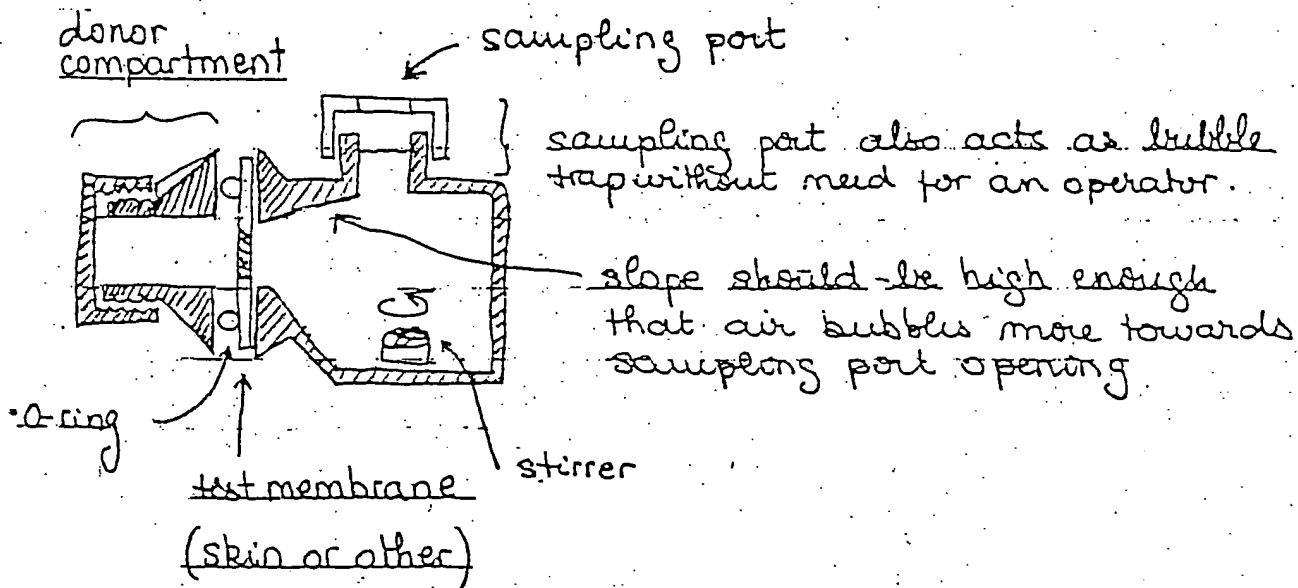 donor
compartment
sampling port
sampling port also acts as bubble
trap without need for an operator.
slope should be high enough
that air bubbles move towards
sampling port opening
O-ring
stirrer
test membrane
(skin or other)